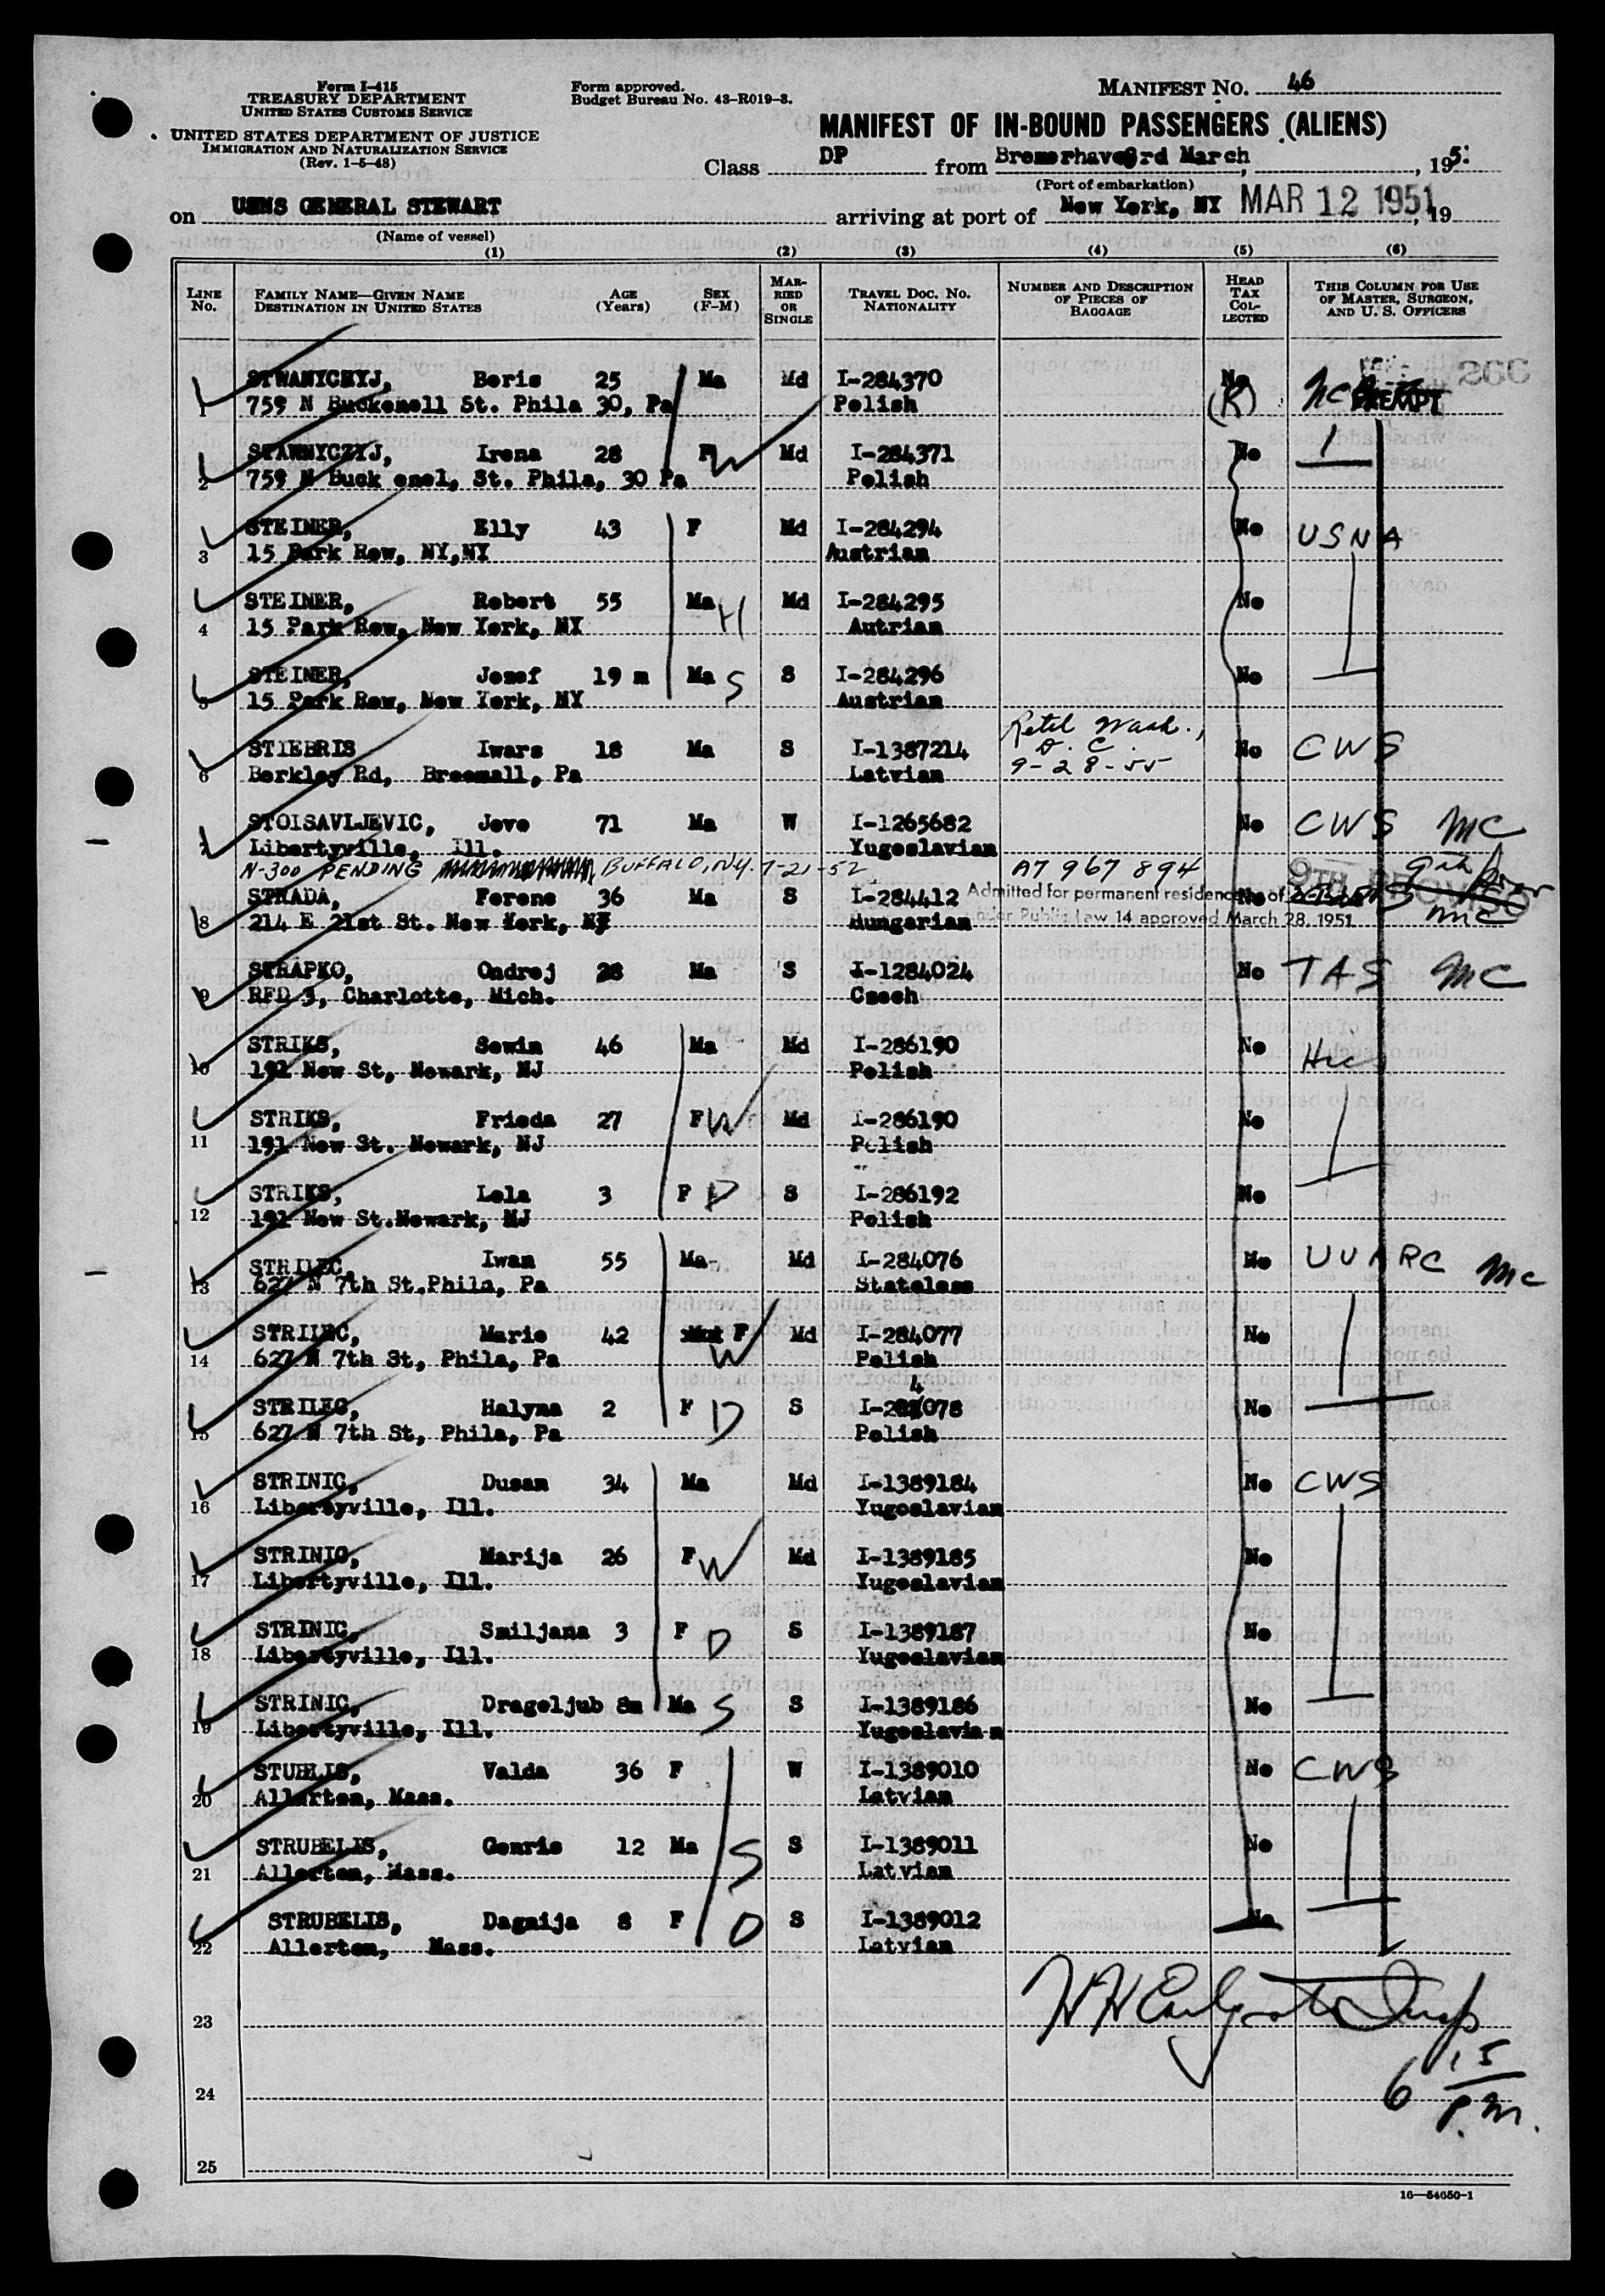 Form I-415
TREASURY DEPARTMENT
UNITED STATES CUSTOMS SERVICE
UNITED STATES DEPARTMENT OF JUSTICE
IMMIGRATION AND NATURALIZATION SERVICE
(Rev. 1-5-48)
Form approved.
Budget Bureau No. 43-R019-3.
MANIFEST NO. 46
MANIFEST OF IN-BOUND PASSENGERS (ALIENS)
Class DP from 3rd March, 195
(Port of embarkation)
on USNS GENERAL STEWART arriving at port of New York, NY MAR 12 1951, 19
(Name of vessel)
(1) (2) (3) (4) (5) (6)
LINE NO. FAMILY NAME—GIVEN NAME DESTINATION IN UNITED STATES AGE (Years) SEX (F-M) MARRIED OR SINGLE TRAVEL DOC. NO. NATIONALITY NUMBER AND DESCRIPTION OF PIECES OF BAGGAGE HEAD TAX COLLECTED THIS COLUMN FOR USE OF MASTER, SURGEON, AND U. S. OFFICERS
266
STWANYCZYJ, Boris 25 Ma Md I-284370 No
1 759 N Buckenell St. Phila 30, Pa Polish (K) EXEMPT
STAWNYCZYJ, Irena 28 F W Md I-284371 No
2 759 N Buck enel, St. Phila, 30 Pa Polish
STEINER, Elly 43 F Md I-284294 No USNA
3 15 Park Row, NY,NY Austrian
STEINER, Robert 55 Ma H Md I-284295 No
4 15 Park Row, New York, NY Autrian
STEINER, Josef 19 m Ma S S I-284296 No
5 15 Park Row, New York, NY Austrian
Wash., D. C. 9-28-55
STIEBRIS Iwars 18 Ma S I-1387214 No CWS
6 Berkley Rd, Broomall, Pa Latvian
STOISAVLJEVIC, Jovo 71 Ma W I-1265682 No CWS MC
7 Libertyville, Ill. Yugoslavian
N-300 PENDING BUFFALO, N.Y. 7-21-52 A7 967 894
9TH PROVISO
STRADA, Ferenc 36 Ma S I-284412 Admitted for permanent residence as of
8 214 E 21st St. New York, NY Hungarian under Public Law 14 approved March 28, 1951
STRAPKO, Ondrej 28 Ma S I-1284024 No TAS MC
9 RFD 3, Charlotte, Mich. Czech
STRIKS, Sewin 46 Ma Md I-286190 No
10 191 New St, Newark, NJ Polish
STRIKS, Frieda 27 F W Md I-286190 No
11 191 New St. Newark, NJ Polish
STRIKS, Lola 3 F D S I-286192 No
12 191 New St.Newark, NJ Polish
STRILEC, Iwan 55 Ma Md I-284076 No UUARC MC
13 627 N 7th St.Phila, Pa Stateless
STRILEC, Marie 42 F W Md I-284077 No
14 627 N 7th St, Phila, Pa Polish
4
STRILEC, Halyna 2 F D S I-28 078 No
15 627 N 7th St, Phila, Pa Polish
STRINIC, Dusan 34 Ma Md I-1389184 No CWS
16 Libertyville, Ill. Yugoslavian
STRINIC, Marija 26 F W Md I-1389185 No
17 Libertyville, Ill. Yugoslavian
STRINIC, Smiljana 3 F D S I-1389187 No
18 Libertyville, Ill. Yugoslavian
STRINIC, Drageljub 8m Ma S S I-1389186 No
19 Libertyville, Ill. Yugoslavian
Valda 36 F W I-1389010 No CWS
20 Allerton, Mass. Latvian
STRUBELIS, Genris 12 Ma S S I-1389011 No
21 Allerton, Mass. Latvian
STRUBELIS, Dagnija 8 F D S I-1389012 No
22 Allerton, Mass. Latvian
23
6 15 P.M.
24
25
16—54650-1